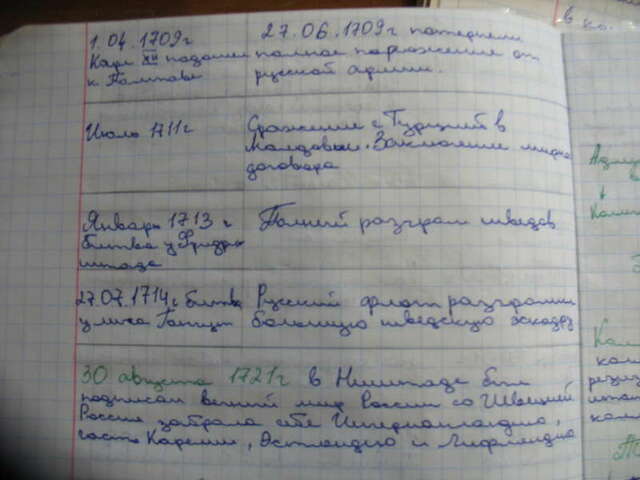 1.04.1709г
Карл XII подошел
к Полтаве
27.06.1709г потерпели
полное поражение от
русской армии.
Июль 1711г
Сражение с Турцией в
Молдавии. Заключение мирного
договора
Январь 1713 г
битва у Фридри
штада
Полный разгром шведов
27.07.1714г битва
у мыса Гангут
Русский флот разгромил
большую шведскую эскадру
30 августа 1721г в Ништаде был
подписан вечный мир России со Швецией
Россия забрала себе Ингерманландию,
часть Карелии, Эстляндию и Лифляндию
в ко.